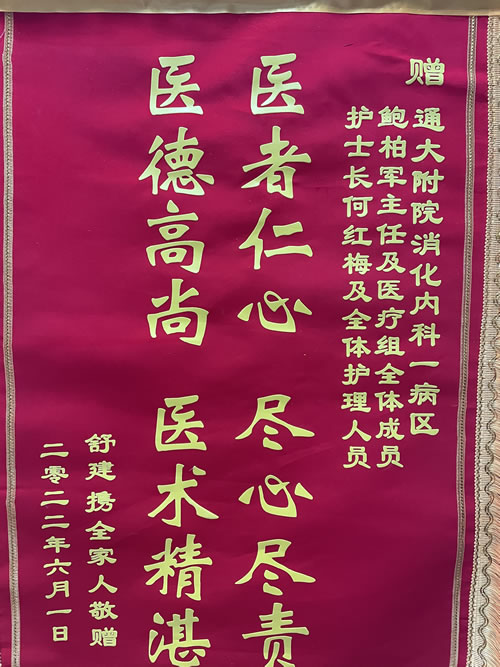 赠
通大附院消化内科一病区
鲍柏军主任及医疗组全体成员
护士长何红梅及全体护理人员
医者仁心 尽心尽责
医德高尚 医术精湛
舒建携全家人敬赠
二零二二年六月一日